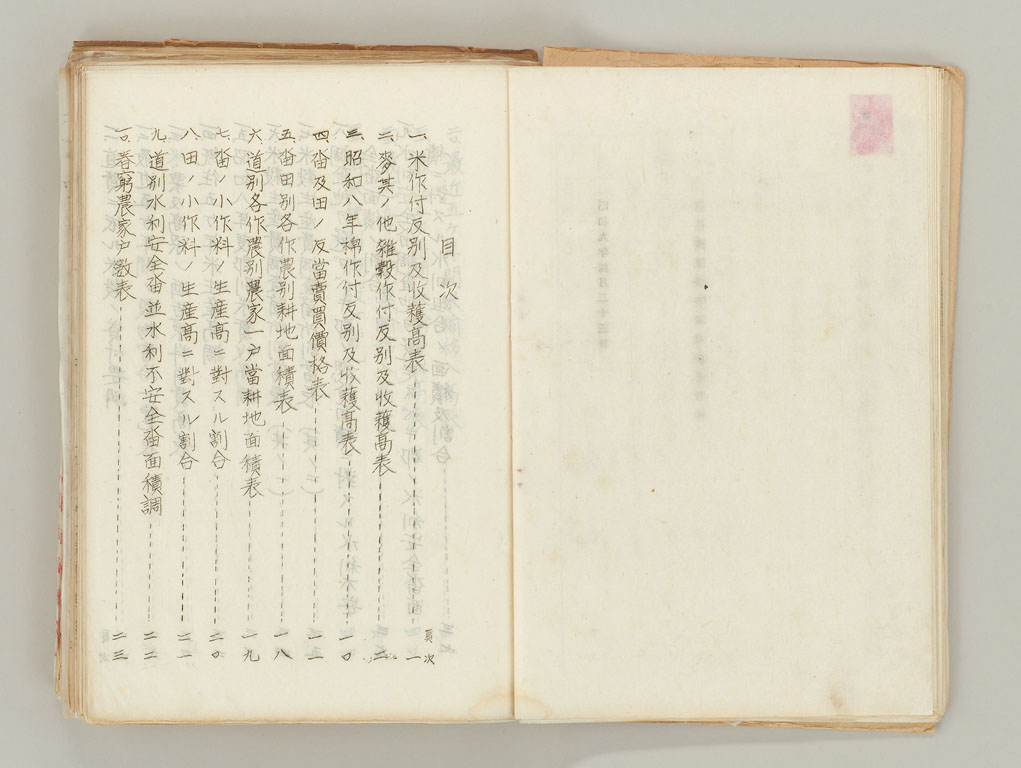 目次
頁次
一、米作付反別及收穫高表 一
二、麥其ノ他雜穀作付反別及收穫高表 二
三、昭和八年棉作付反別及收穫高表 一〇
四、畓及田ノ反當賣買價格表 一一
五、畓田別各作農別耕地面積表 一八
六、道別各作農別農家一戸當耕地面積表 一九
七、畓ノ小作料ノ生産高ニ對スル割合 二〇
八、田ノ小作料ノ生産高ニ對スル割合 二一
九、道別水利安全畓並水利不安全畓面積調 二二
一〇、春窮農家戸數表 二三